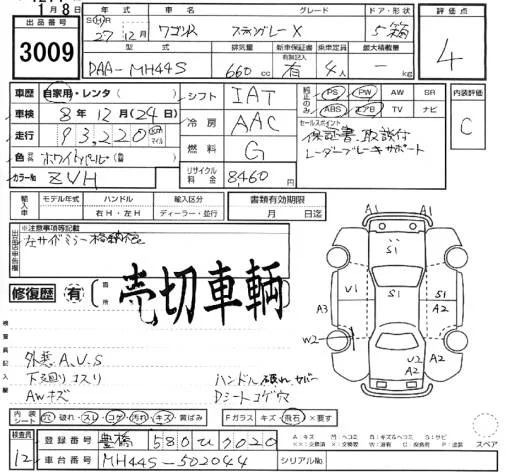 1月8日
出品番号
3009
年式
車名
グレード
ドア・形状
評価点
SH R 27年 12月
ワゴンR
スティングレーX
5 箱
4
型式
排気量
新車保証書
乗車定員
最大積載量
有無記入
DAA-MH44S
660 cc
有
4人
- kg
車歴 自家用・レンタ
シフト IAT
純正のみ PS PW AW SR
ABS エアB TV ナビ
内装評価
C
車検 8年12月(24日)
冷房 AAC
セールスポイント
保証書、取説付
レーダーブレーキサポート
走行 93,220 km マイル
燃料 G
色 元色 ホワイトパール
カラーNo ZVH
リサイクル料金 8,460円
輸入車
モデル年式
ハンドル
輸入区分
書類有効期限
年
右H・左H
ディーラー・並行
月 日迄
出品店申告欄
※注意事項等記載
左サイドミラー格納不包
修復歴 有
箇所
売切車輌
検査員記入欄
外装A.U.S
下廻りコスリ
AWキズ
ハンドル破れ、カバー
Dシートコゲ穴
A1
A1
S1
U1
S1
S1
A2
A3
A2
W2
U2
A2
A2
内装シート 穴・破れ・スレ・コゲ・汚れ・キズ・黄ばみ
Fガラス キズ・飛石・×要す
スペア
検査員
12
登録番号 豊橋 580 ひ 7020
車台番号 MH44S-502044
シリアルNo
A:キズ M:ヘコミ B:キズ&ヘコミ S:サビ